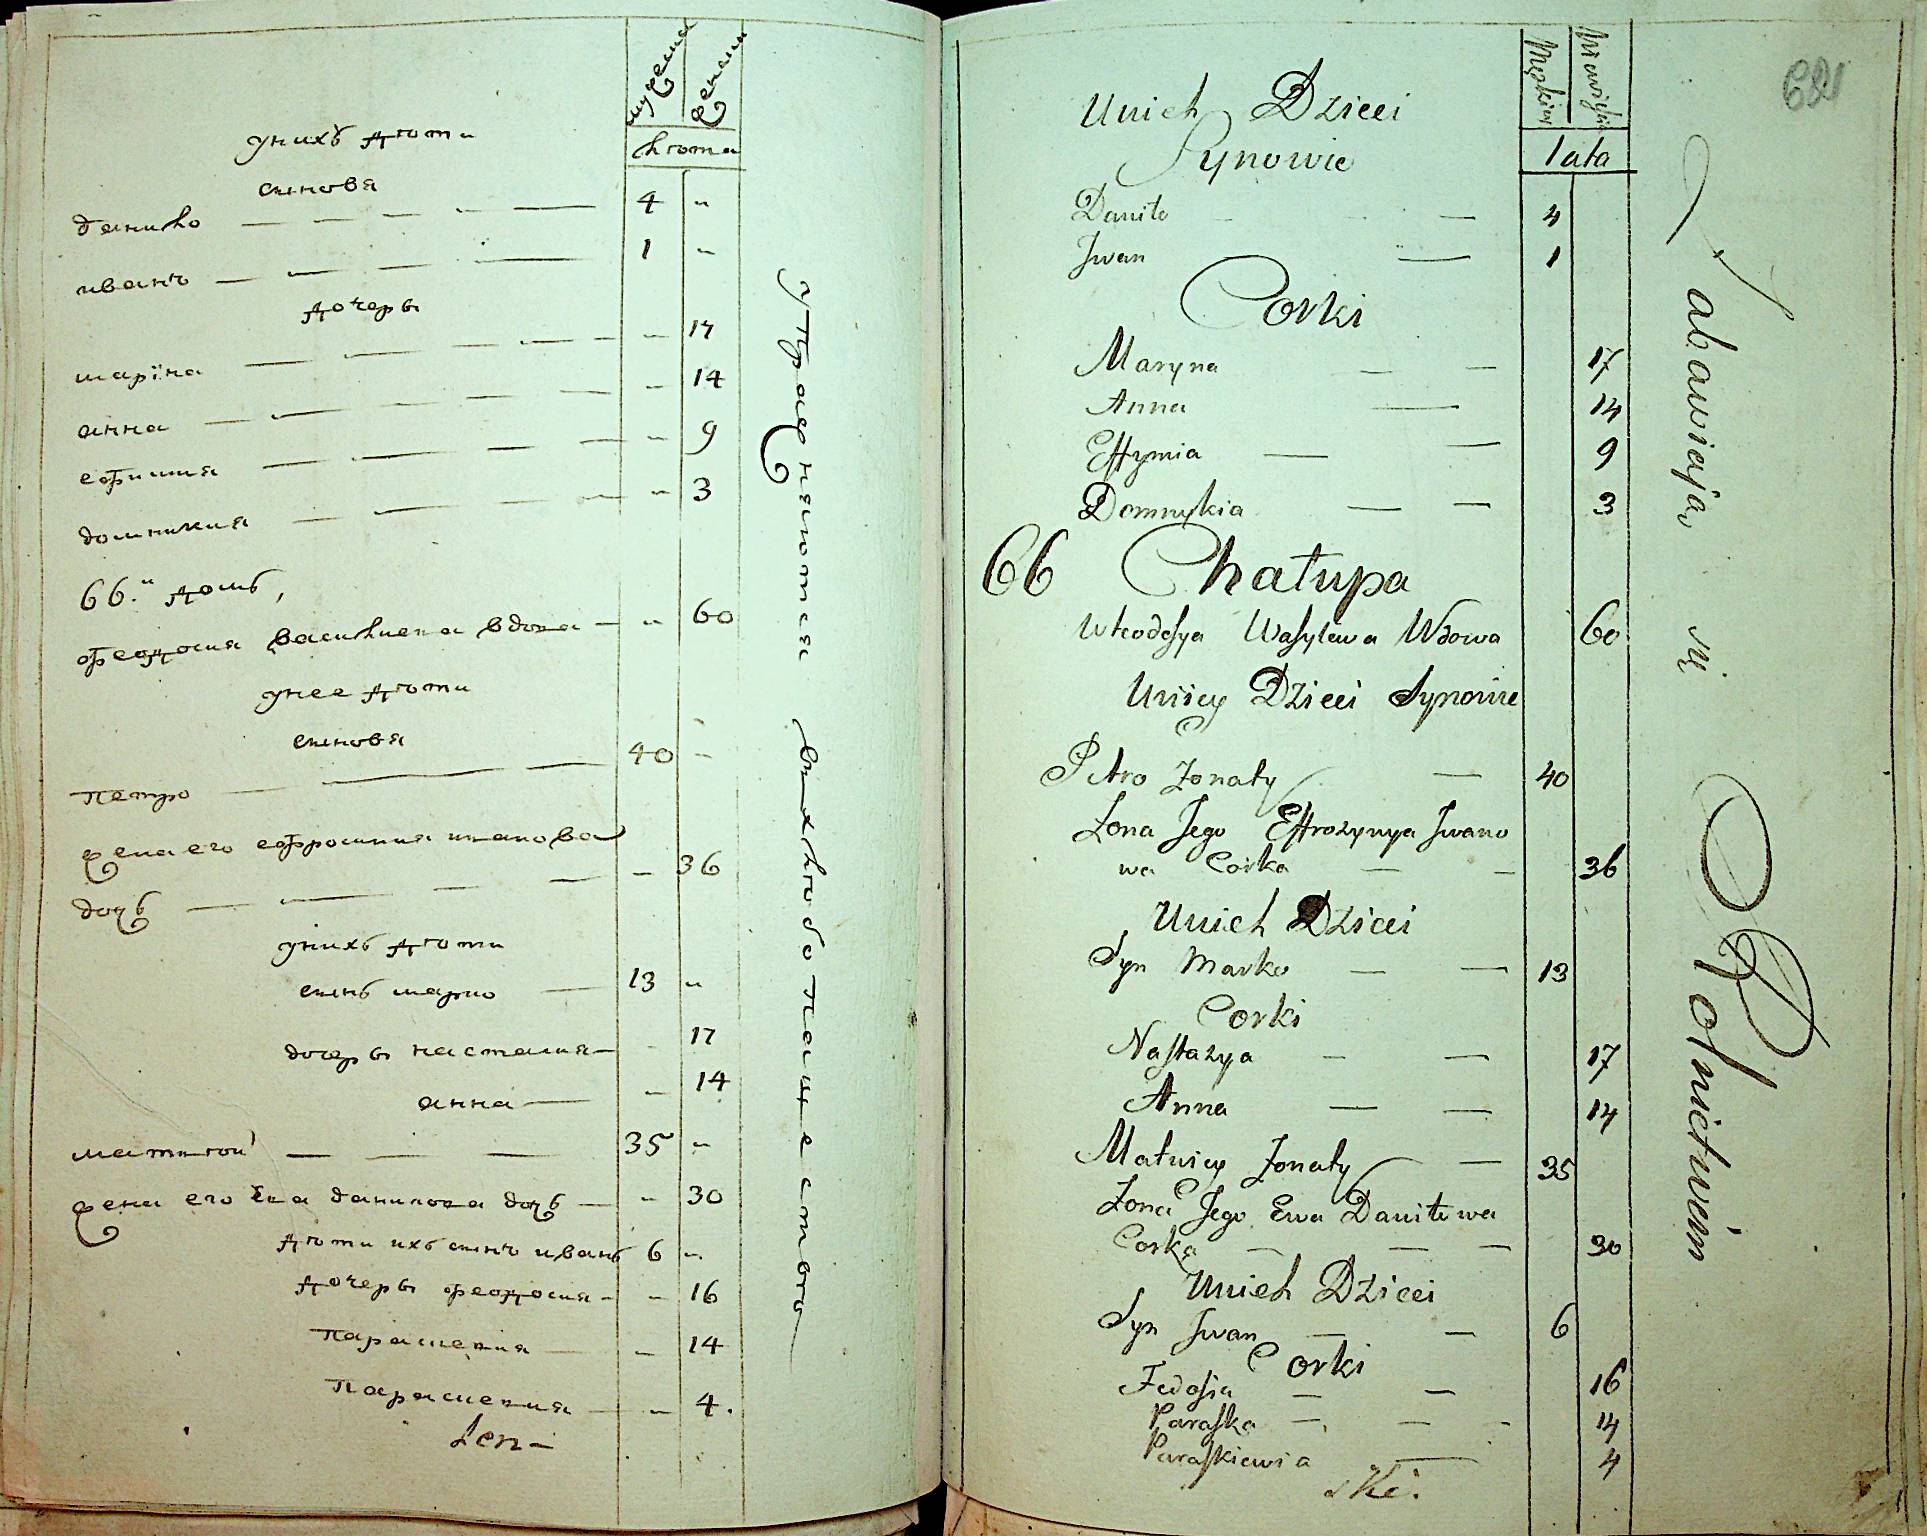 мужеска
женска
лѣта
у нихъ дѣти
синовя
данило — — — — 4 "
иванъ — — — — 1 "
дочеры
марїна — — — — " 17
анна — — — — " 14
ефимия — — — — " 9
домникия — — — — " 3
66.й домъ,
феодосия василиева вдова — " 60
у нее дѣти
синовя
петро — — — 40 "
жена его ефросиния иванова
дочъ — — — — " 36
у нихъ дѣти
синъ марко — 13 "
дочеры настасия — " 17
анна — " 14
матвѣй — — — 35 "
жена его Ева данилова дочъ — " 30
дѣти ихъ синъ иванъ 6 "
дочеры феодосия — " 16
параскевия — " 14
параскевия — " 4.
Len-
упражняются
в хлѣбопашество
681
Męskiey
Niewieściey
lata
Unich Dzieci
Synowie
Daniło — 4
Iwan — 1
Corki
Maryna — — 17
Anna — 14
Effymia — — 9
Domnykia — — 3
66 Chałupa
Wteodosya Wasylewa Wdowa 60
Uniey Dzieci Synowie
Petro Zonaty — 40
Zona Jego Effrozynya Iwano
wa Corka — — 36
Unich Dzieci
Syn Marko — — 13
Corki
Nastazya — — 17
Anna — — 14
Matwiey Zonaty — 35
Zona Jego Ewa Daniłowa
Corka — — — 30
Unich Dzieci
Syn Iwan — — 6
Corki
Fedosia — — 16
Paraska — — — 14
Paraskiewia — 4
ski.
Zabawiaią się Rolnictwem